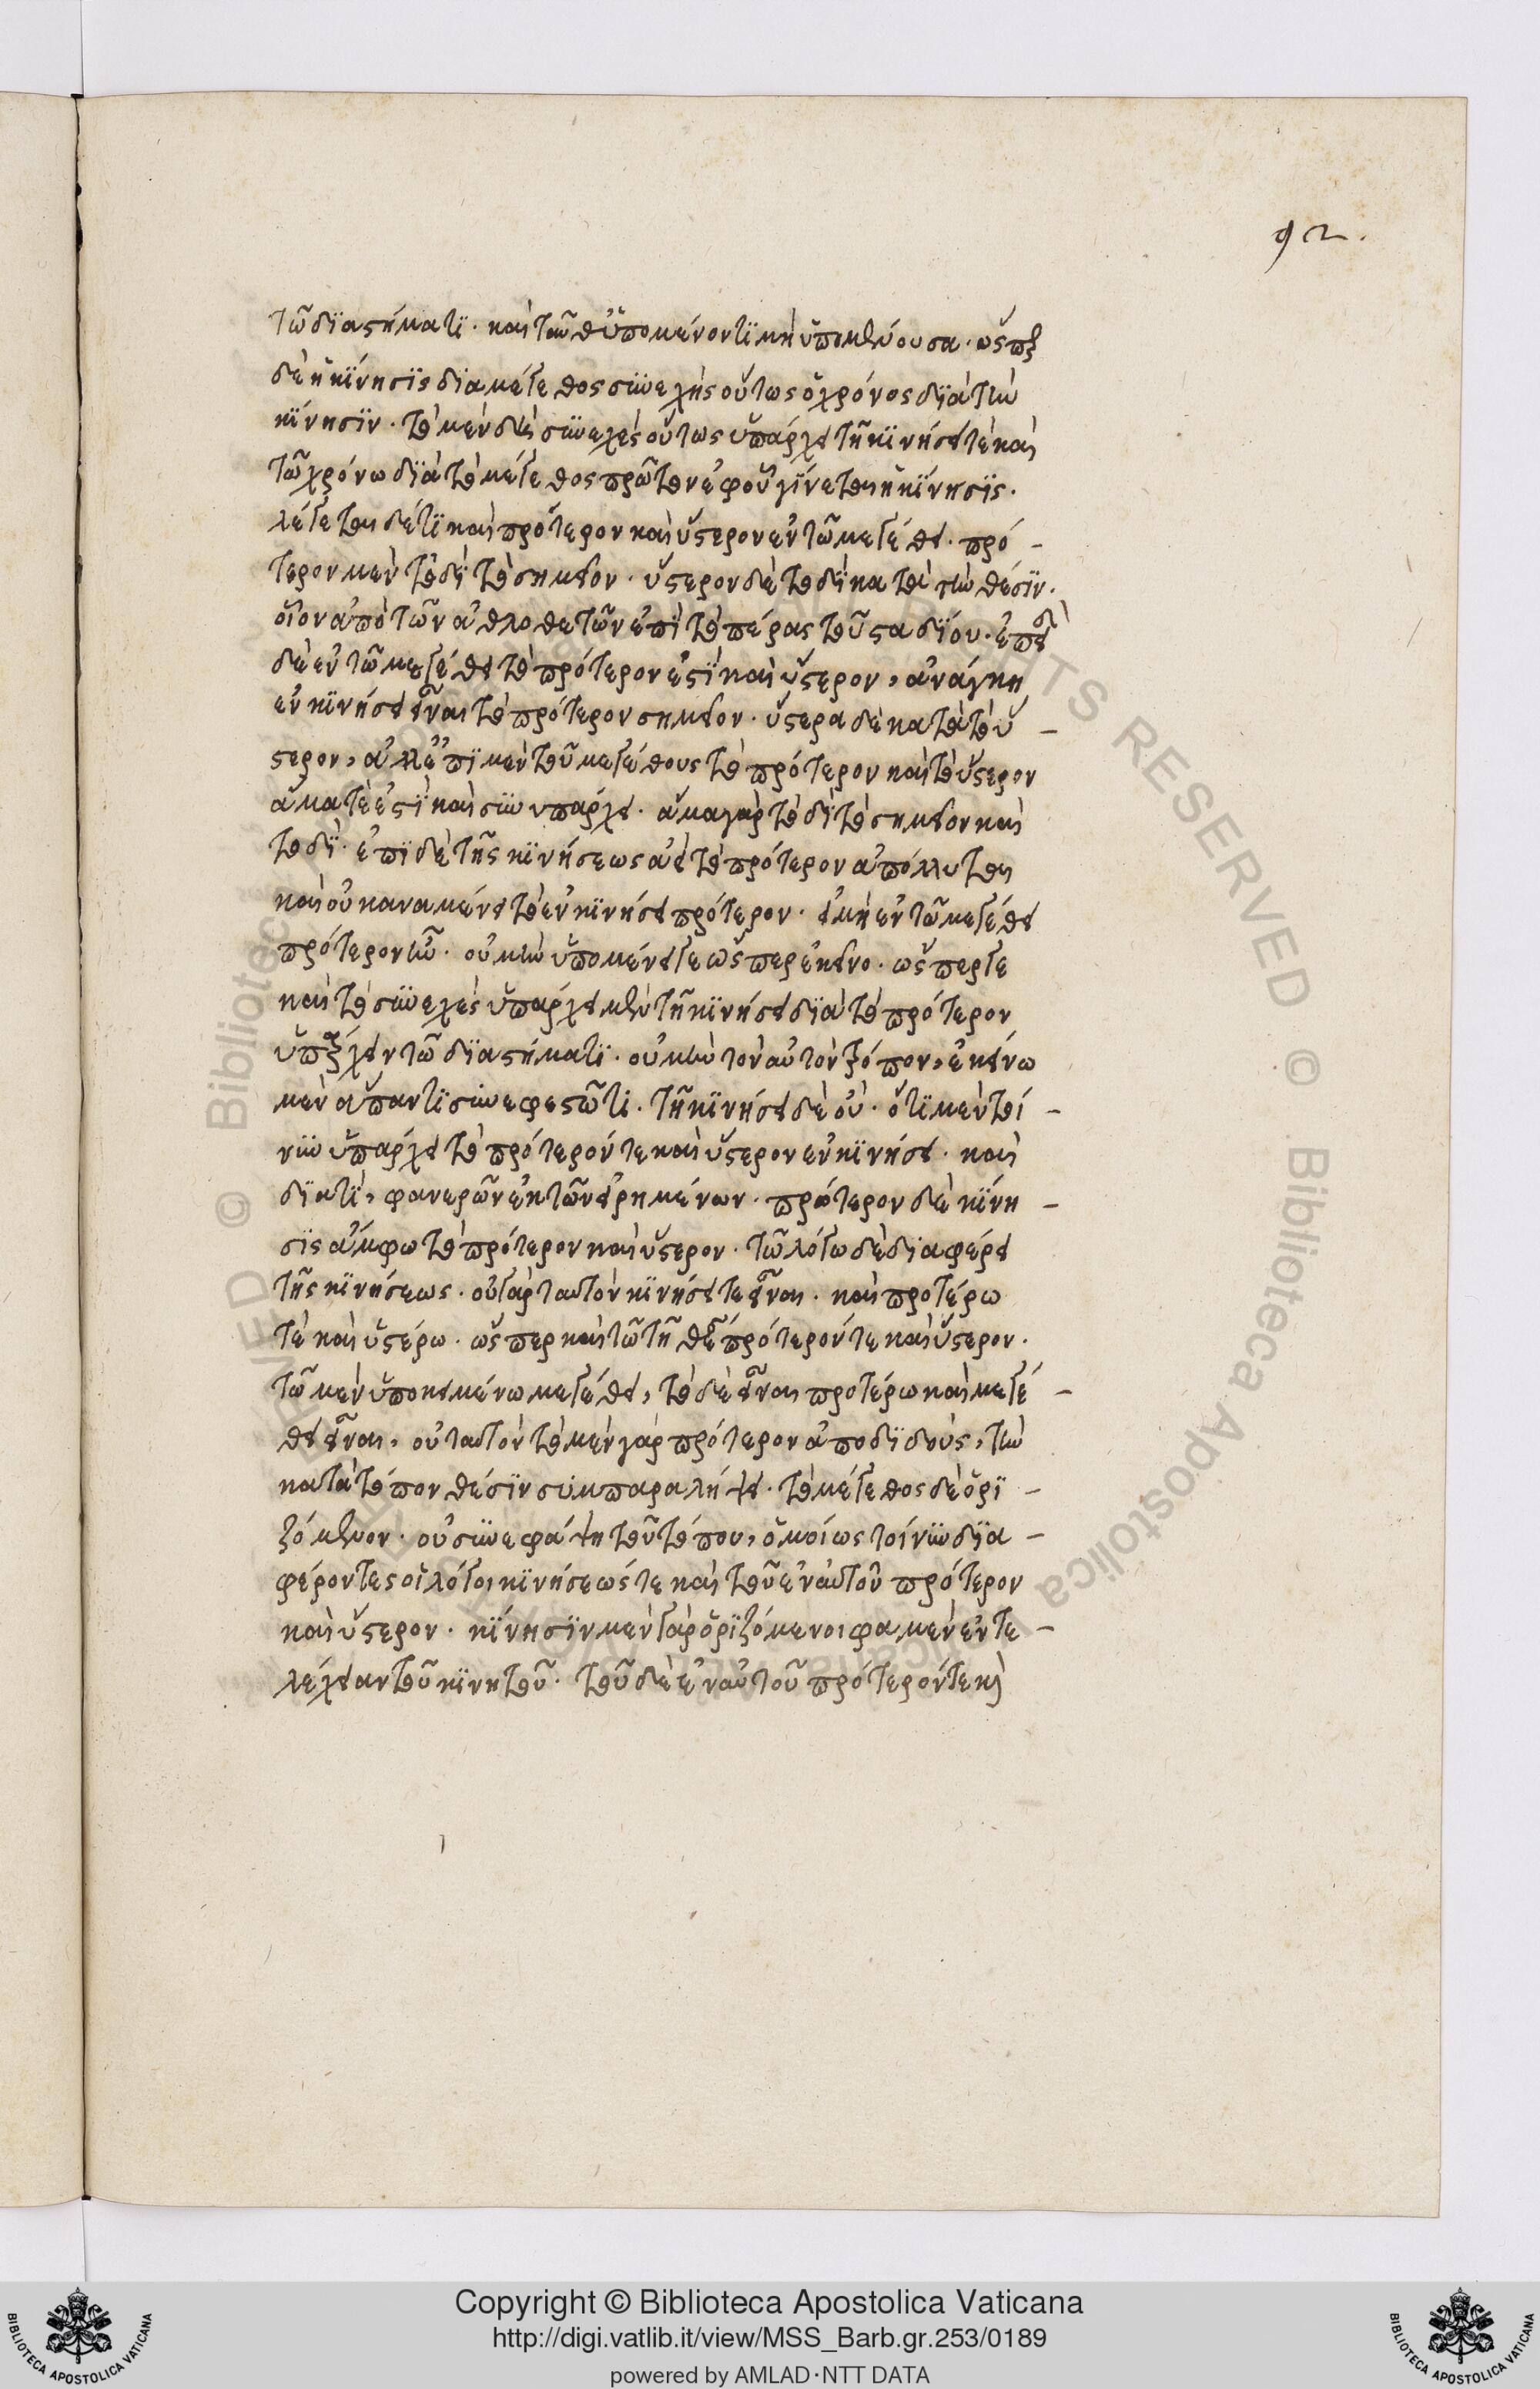 92.
τῶ διαστήματι· καὶ τῶ θ' ὑπομένοντι μὴ ὑπομένουσα· ὥσπερ
δὲ ἡ κίνησις διὰ μέγεθος συνεχὴς οὕτως ὁ χρόνος διὰ τὴν
κίνησιν· τὸ μὲν δὴ συνεχὲς οὕτως ὑπάρχει τῆ κινήσει τὲ καὶ
τῶ χρόνω διὰ τὸ μέγεθος πρῶτον ἐφ' οὗ γίνεται ἡ κίνησις·
λέγεται δέ τι καὶ πρότερον καὶ ὕστερον ἐν τῶ μεγέθει· πρό-
τερον μὲν τὸ δὶ τὸ σημεῖον· ὕστερον δὲ τὸ δὶ κατὰ τὴν θέσιν·
οἷον ἀπὸ τῶν ἀθλοθετῶν ἐπὶ τὸ πέρας τοῦ σταδίου· ἐπεὶ
δὲ ἐν τῶ μεγέθει τὸ πρότερον ἐστὶ καὶ ὕστερον, ἀνάγκη
ἐν κινήσει εἶναι τὸ πρότερον σημεῖον· ὕστερα δὲ κατὰ τὸ ὕ-
στερον, ἀλλ' ἐπὶ μὲν τοῦ μεγέθους τὸ πρότερον καὶ τὸ ὕστερον
ἅμα τέ ἐστὶ καὶ συνυπάρχει· ἅμα γὰρ τὸ δὶ τὸ σημεῖον καὶ
τὸ δὶ· ἐπὶ δὲ τῆς κινήσεως ἀεὶ τὸ πρότερον ἀπόλλυται
καὶ οὐκ ἀναμένει τὸ ἐν κινήσει πρότερον· εἰ μὴ ἐν τῶ μεγέθει
πρότερον ἦν· οὐ μὴν ὑπομένει γε ὥσπερ ἐκεῖνο· ὥσπερ γε
καὶ τὸ συνεχὲς ὑπάρχει μὲν τῆ κινήσει διὰ τὸ πρότερον
ὑπάρχειν τῶ διαστήματι· οὐ μὴν τὸν αὐτὸν τρόπον, ἐκείνω
μὲν ἅπαντι συνεφεστῶτι· τῆ κινήσει δὲ οὐ· ὅτι μὲν τοί-
νυν ὑπάρχει τὸ πρότερόν τε καὶ ὕστερον ἐν κινήσει· καὶ
διατὶ, φανερῶν ἐκ τῶν εἰρημένων· πρότερον δὲ κίνη-
σις ἄμφω τὸ πρότερον καὶ ὕστερον· τῶ λόγω δὲ διαφέρει
τῆς κινήσεως· οὐ γὰρ ταυτὸν κινήσει τε εἶναι· καὶ προτέρω
τὲ καὶ ὑστέρω· ὥσπερ καὶ τῶ τῆ θέσει πρότερόν τε καὶ ὕστερον·
τῶ μὲν ὑποκειμένω μεγέθει, τὸ δὲ εἶναι προτέρω καὶ μεγέ-
θει εἶναι, οὐ ταυτὸν τὸ μὲν γὰρ πρότερον ἀποδιδοὺς, τὴν
κατὰ τόπον θέσιν συμπαραλήψει· τὸ μέγεθος δὲ ὁρι-
ζόμενον· οὐ συνεφάψη τοῦ τόπου, ὁμοίως τοίνυν δια-
φέροντες οἱ λόγοι κινήσεώς τε καὶ τοῦ ἐν αὐτοῦ πρότερον
καὶ ὕστερον· κίνησιν μὲν γὰρ ὁριζόμενοι φαμὲν ἐντε-
λέχειαν τοῦ κινητοῦ· τοῦ δὲ ἐν αὐτοῦ πρότερόν τε καὶ
Copyright © Biblioteca Apostolica Vaticana
http://digi.vatlib.it/view/MSS_Barb.gr.253/0189
powered by AMLAD·NTT DATA
BIBLIOTECA APOSTOLICA VATICANA
BIBLIOTECA APOSTOLICA VATICANA